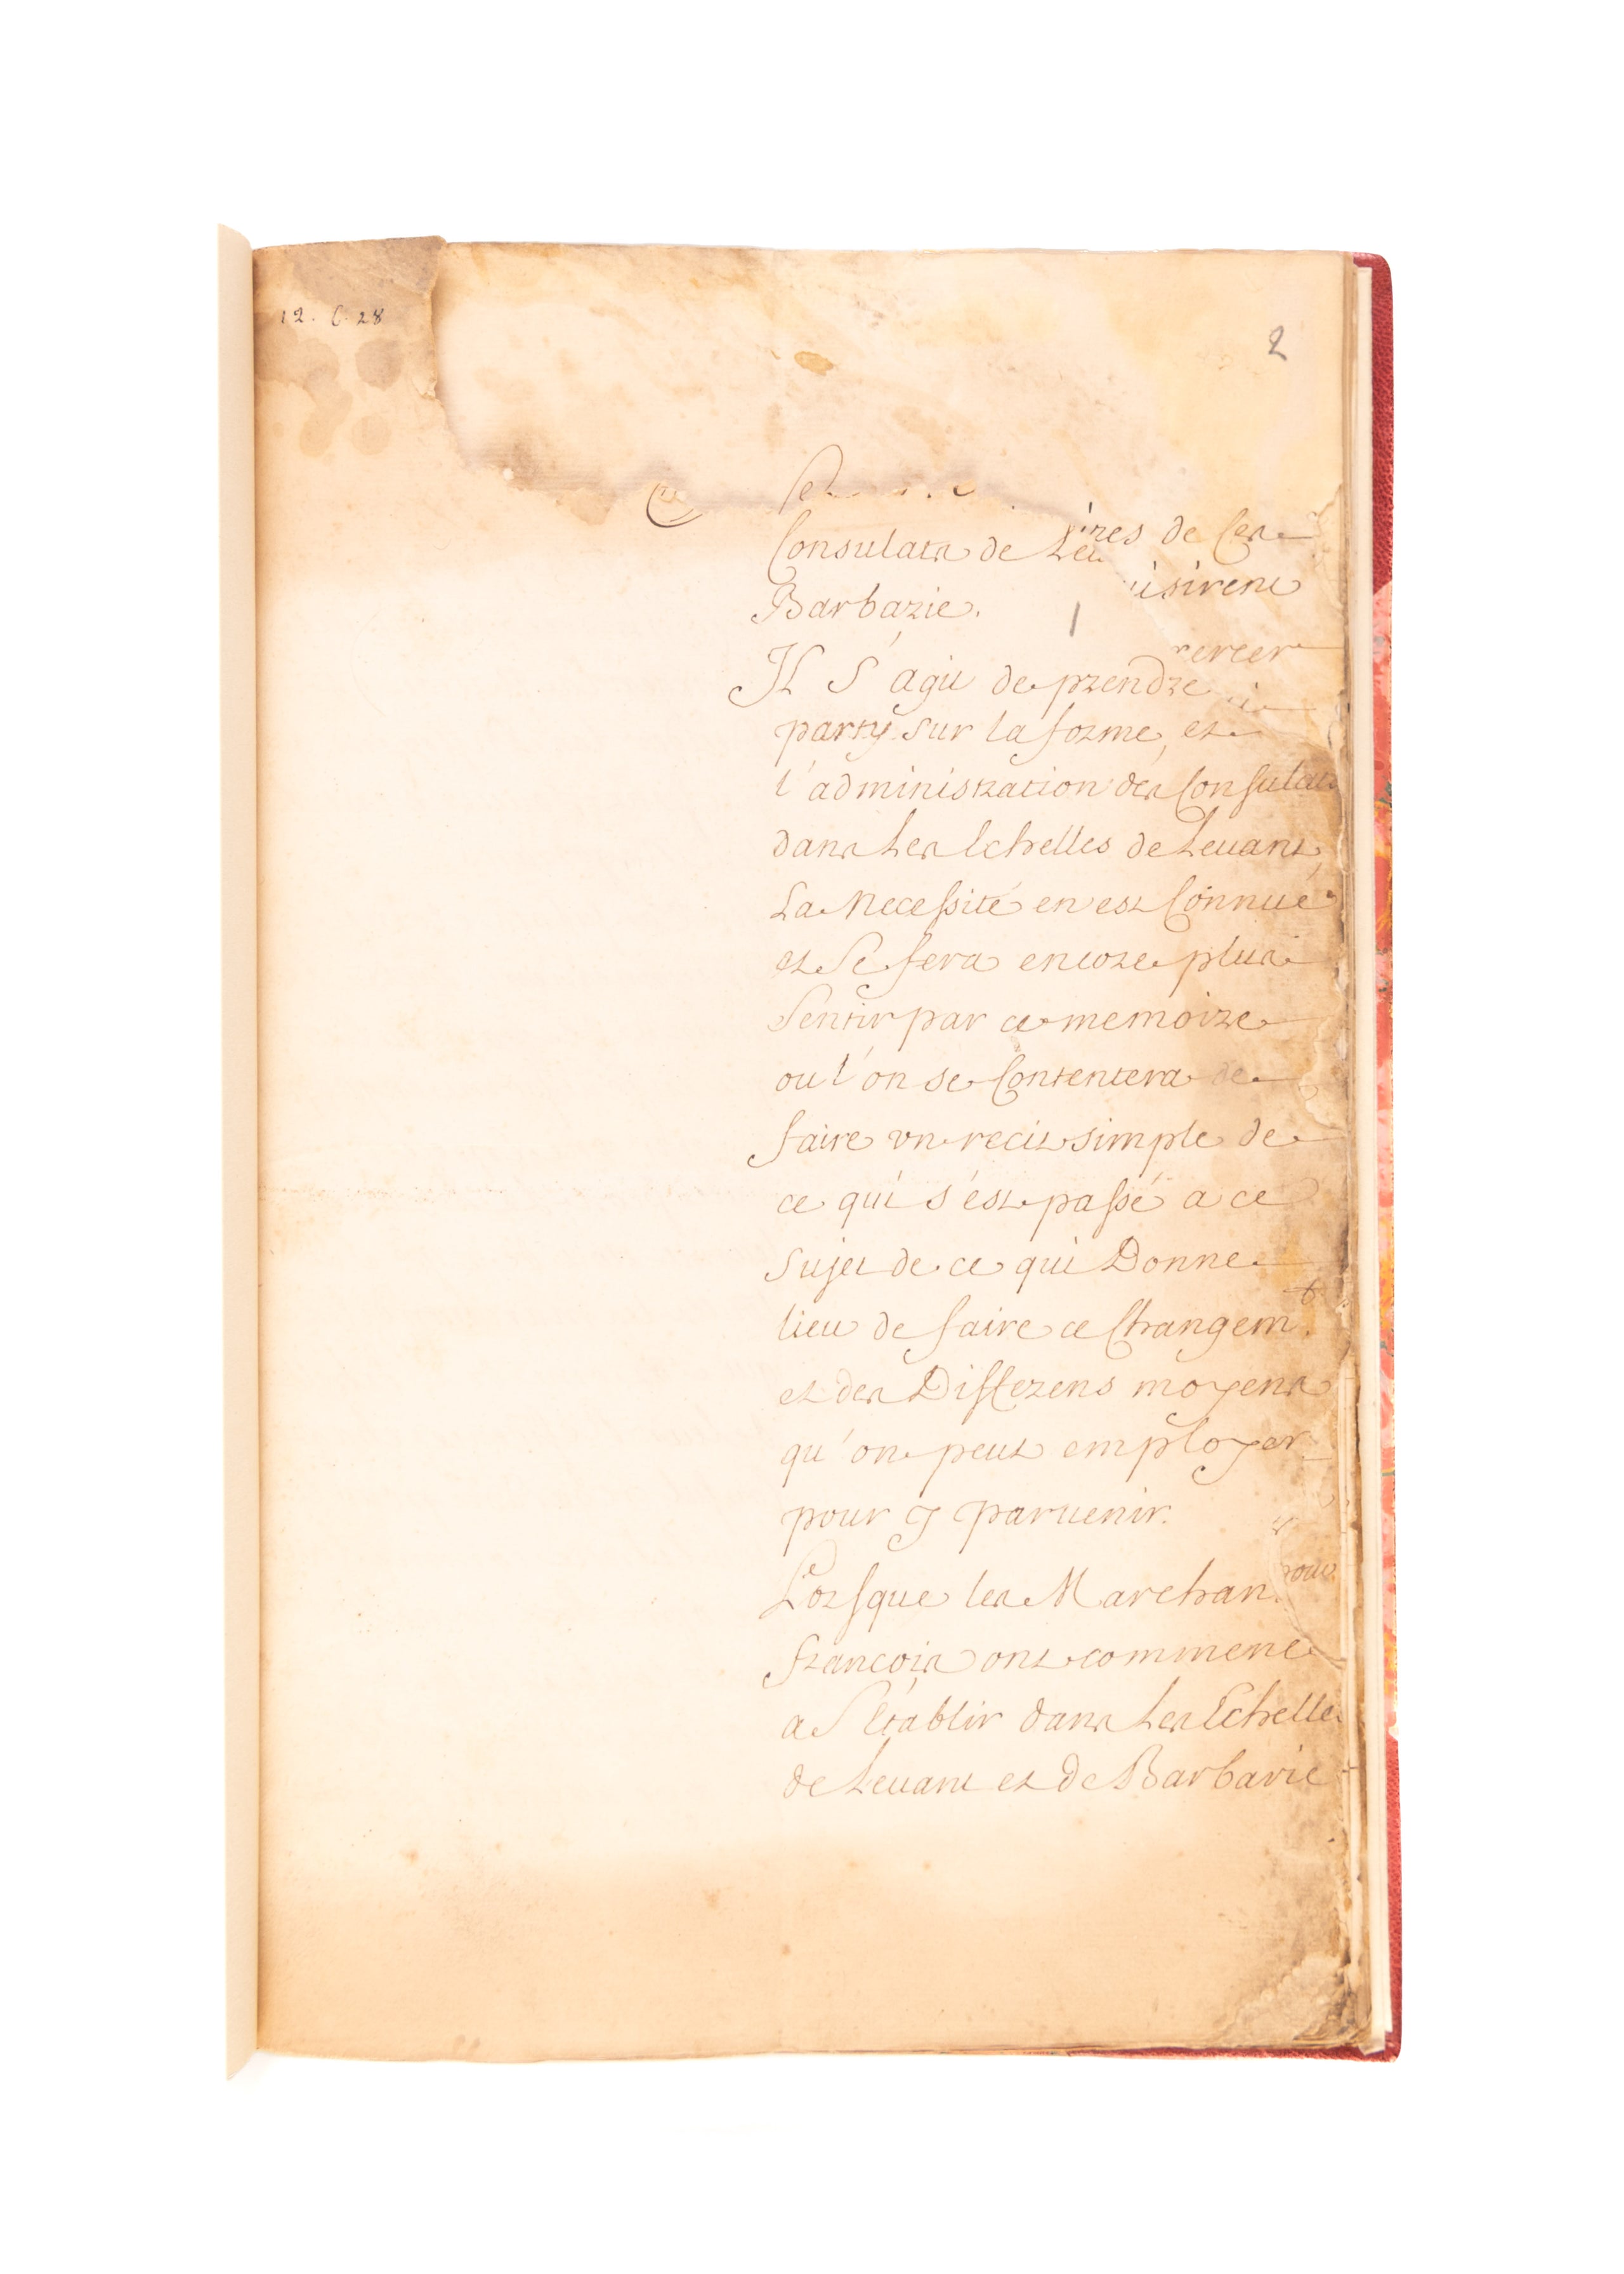 12. C. 28
2
Consulats de Le
Barbarie.
Il S'agit de prendre
party sur la forme, et
l'administration des Consulats
dans Les Echelles de Levant,
La Necessité en est Connuë
et Se fera encore plus
Sentir par ce memoire
ou l'on se Contentera de
faire vn recit simple de
ce qui s'est passé a ce
Sujet de ce qui Donne
lieu de faire ce Changemt.
et des Differens moyens
qu'on peut employer
pour y paruenir.
Lorsque les Marchan
francois ont commenc
a S'Etablir dans Les Echelle
de Leuant et De Barbarie
ires de Ces
isirent
rercer